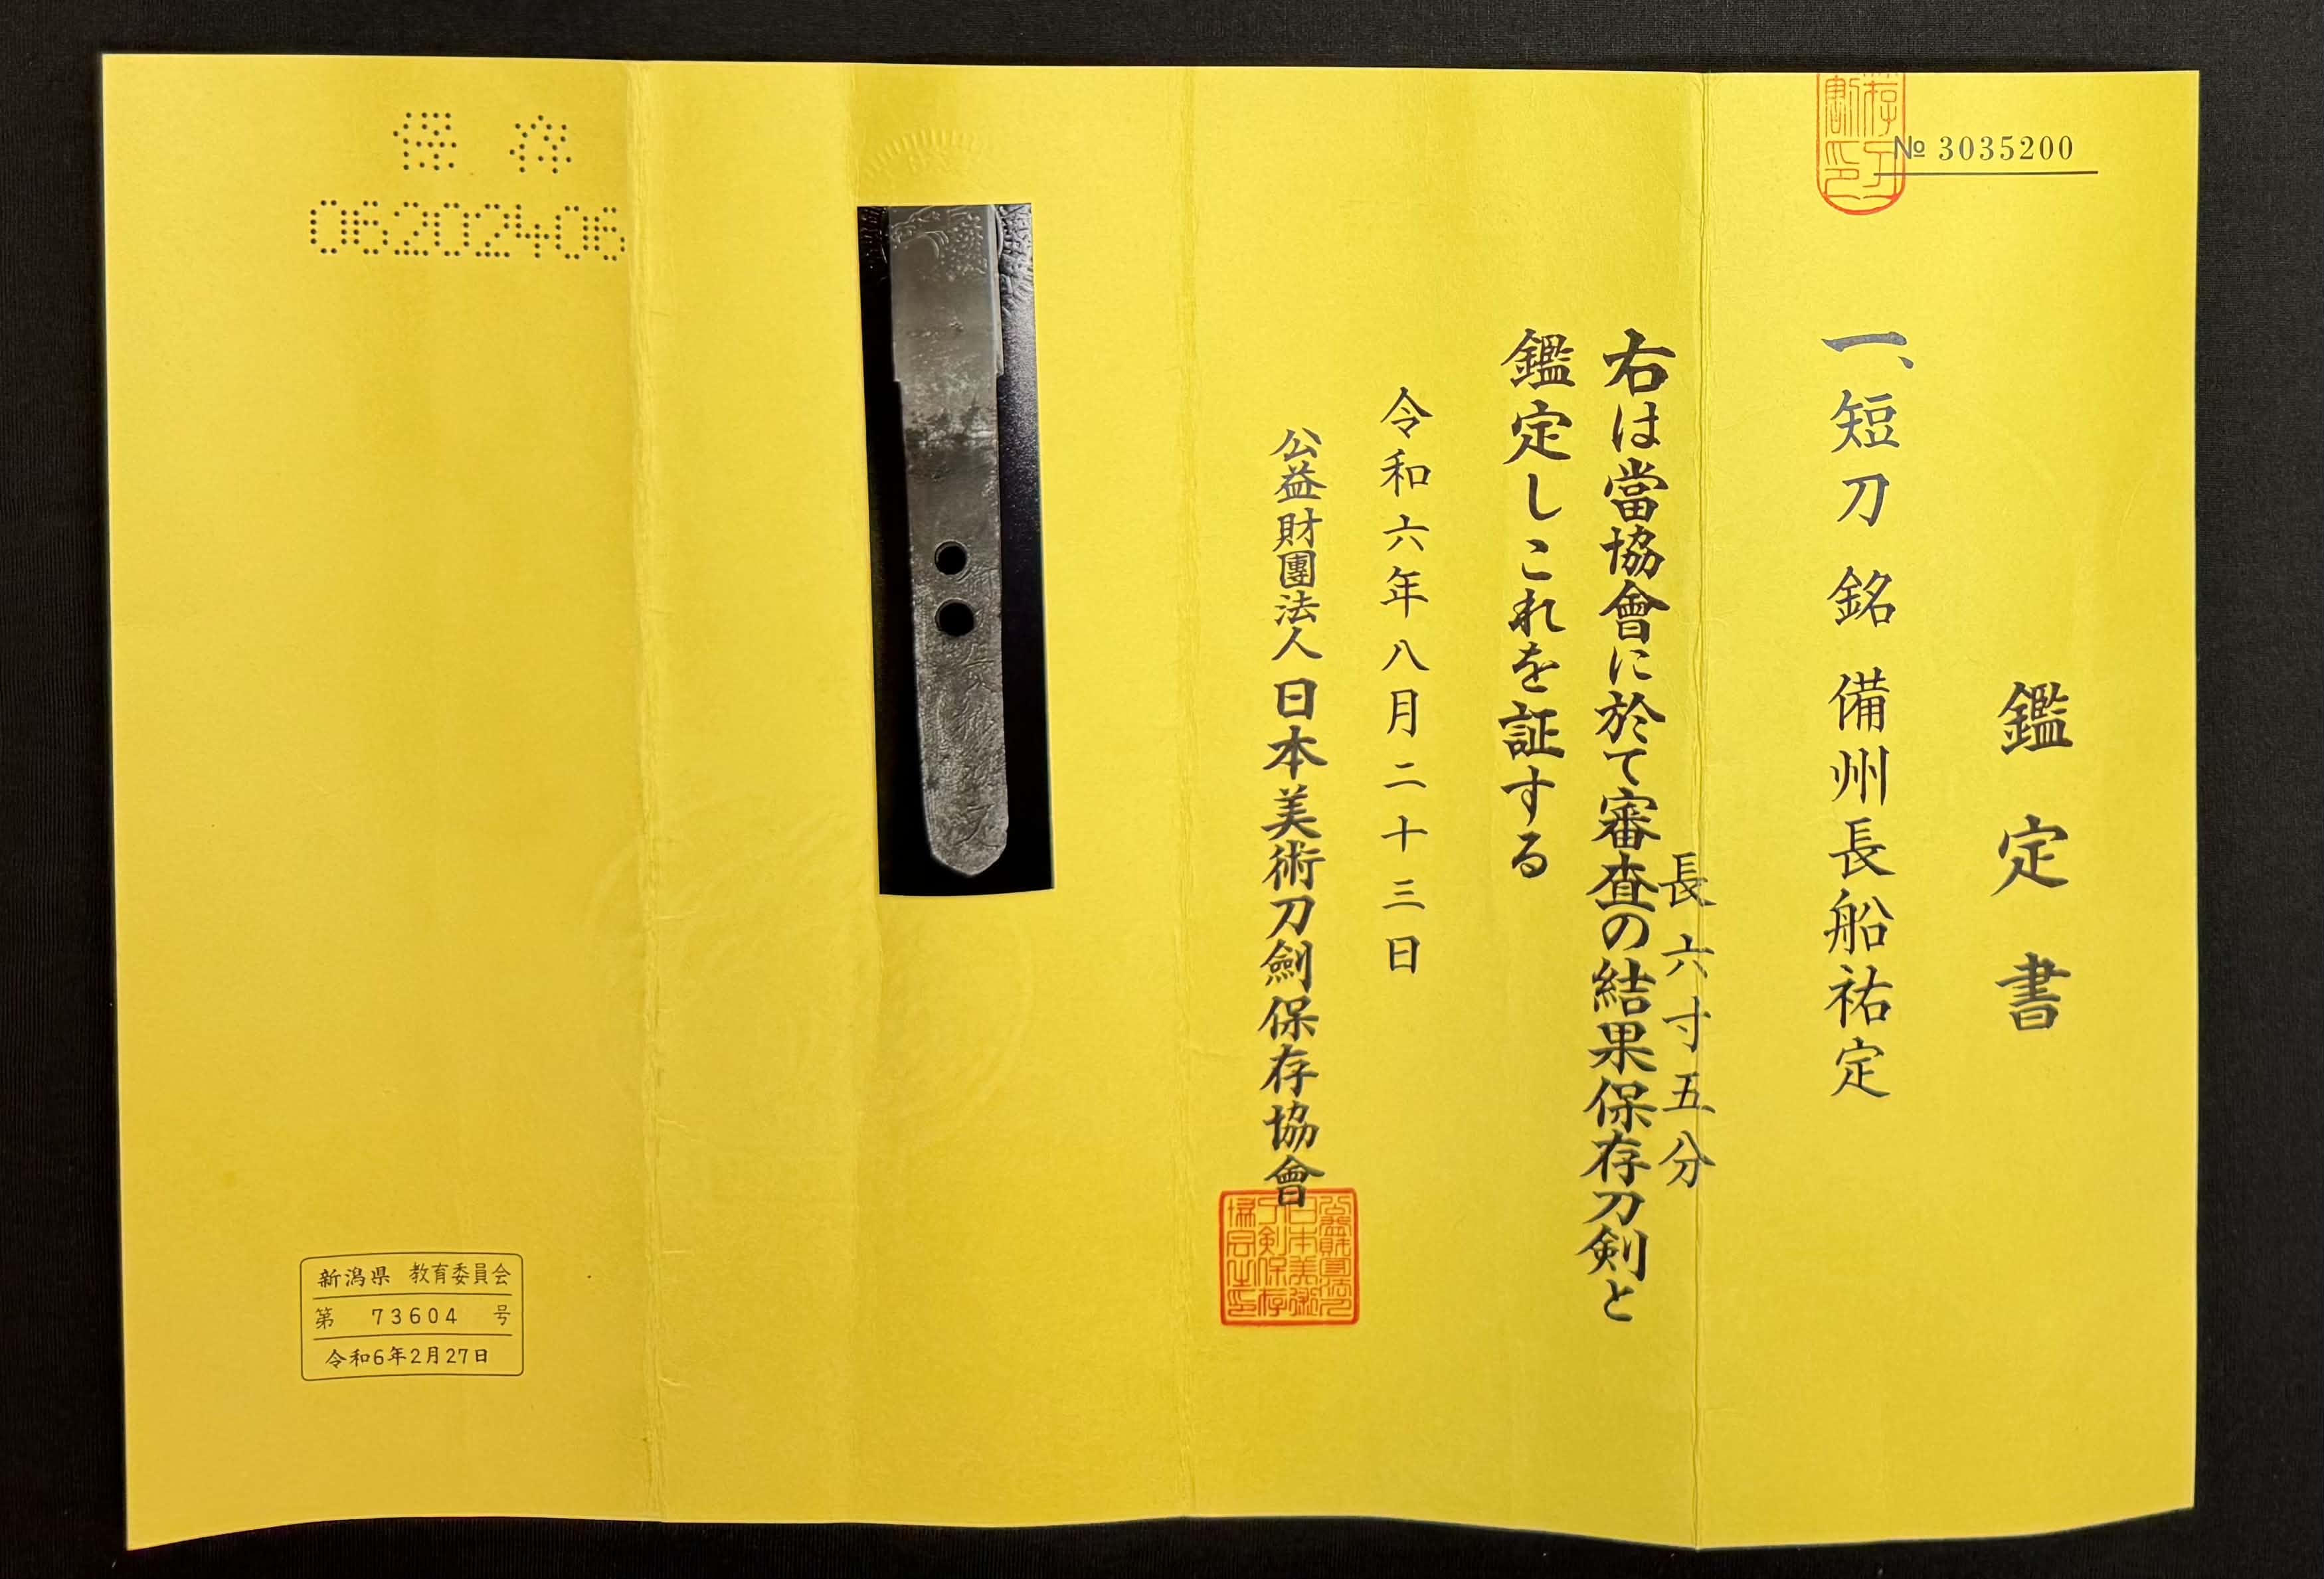 № 3035200
鑑定書
一、短刀 銘 備州長船祐定
長六寸五分
右は當協會に於て審査の結果保存刀剣と
鑑定しこれを証する
令和六年八月二十三日
公益財團法人 日本美術刀劍保存協會
保存
06202406
新潟県 教育委員会
第 73604 号
令和6年2月27日